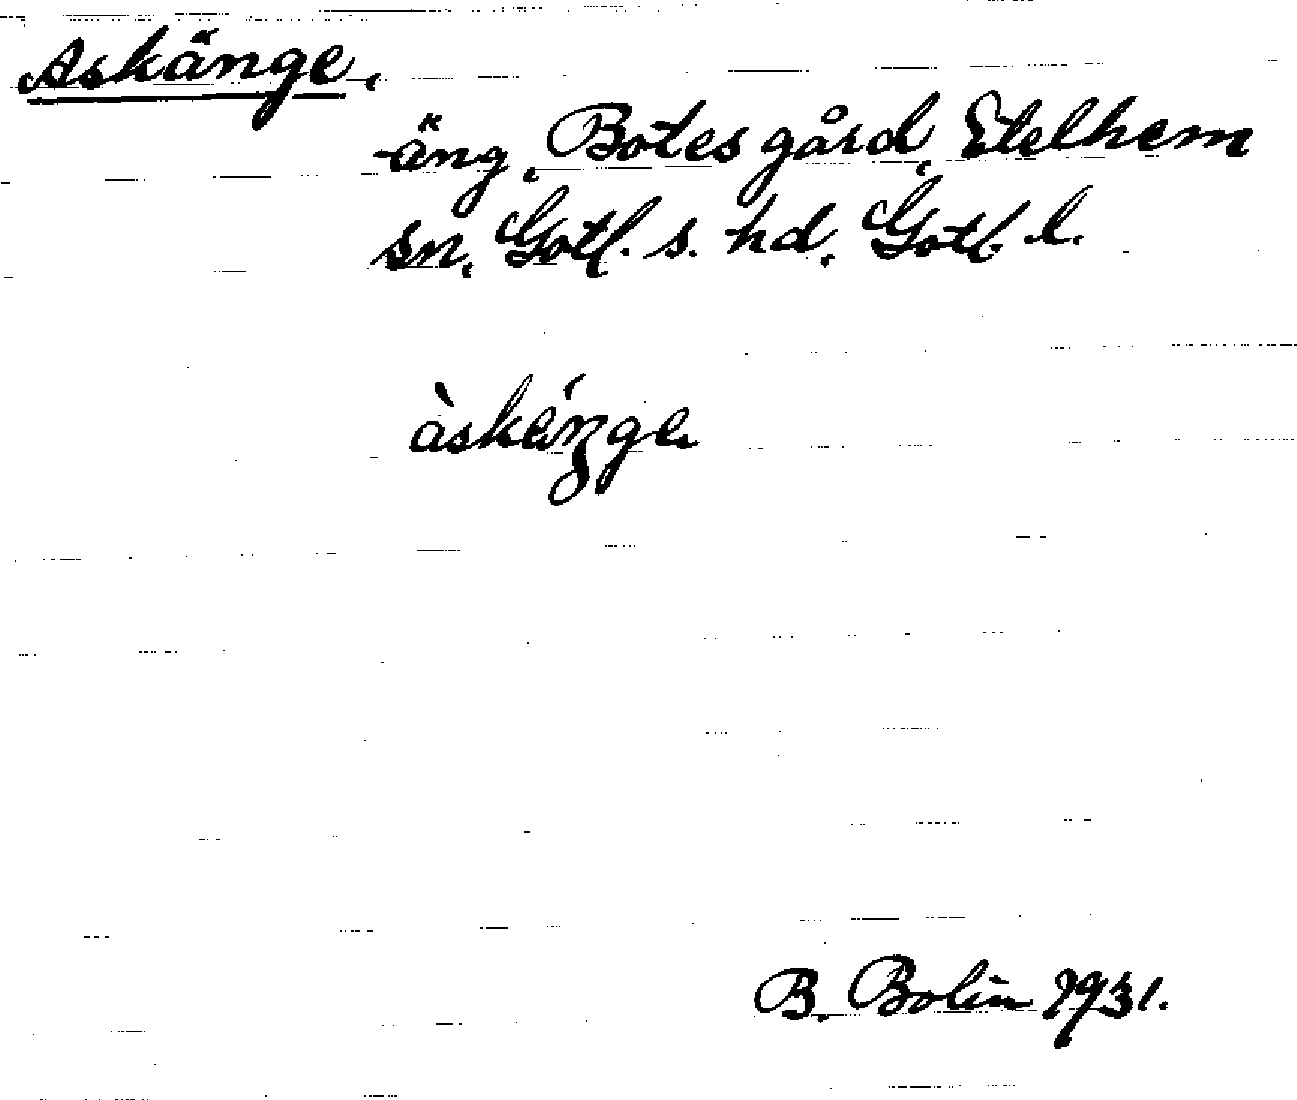 Askänge,
äng, Botes gård, Etelhem
sn, Gotl. s. hd, Gotl. l.
àskéŋge
B. Bolin 1931.